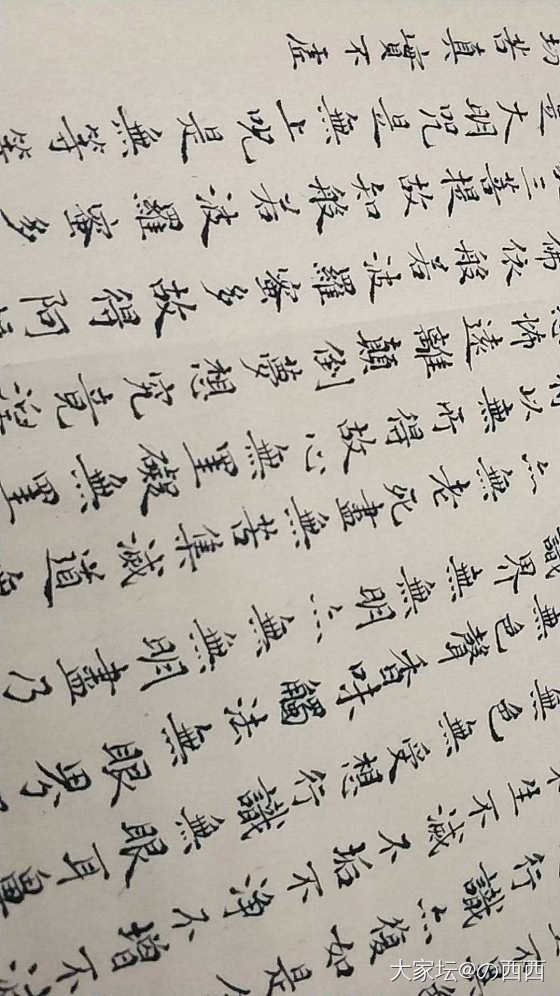 行識亦復如是舍
不生不滅不垢不淨不增不減
無色無受想行識無眼耳鼻
無色聲香味觸法無眼界
識界無無明亦無無明盡乃
亦無老死盡無苦集滅道無
以無所得故心無罣礙無罣
怖遠離顛倒夢想究竟涅
佛依般若波羅蜜多故得阿
三菩提故知般若波羅蜜多
大明咒是無上咒是無等等
切苦真實不虛
大家坛@の西西